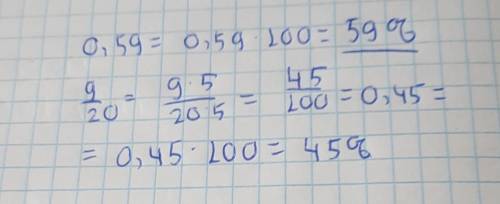 0,59 = 0,59 · 100 = 59%
9/20 = 9·5/20·5 = 45/100 = 0,45 =
= 0,45 · 100 = 45%